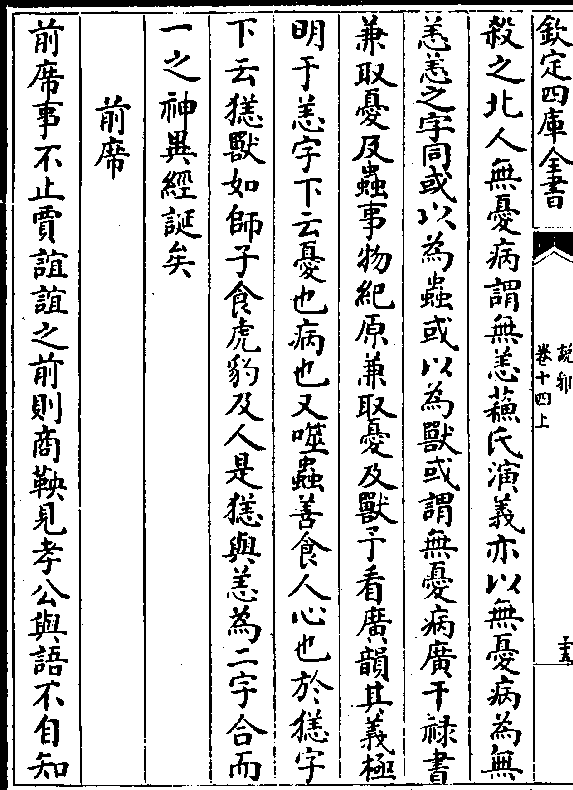 欽定四庫全書
說郛
卷十四上
殺之北人無憂病謂無恙蘇氏演義亦以無憂病為無
恙恙之字同或以為蟲或以為獸或謂無憂病廣干祿書
兼取憂及蟲事物紀原兼取憂及獸予看廣韻其義極
明于恙字下云憂也病也又噬蟲善食人心也於㺊字
下云㺊獸如師子食虎豹及人是㺊與恙為二字合而
一之神異經誕矣
前席
前席事不止賈誼誼之前則商鞅見孝公與語不自知